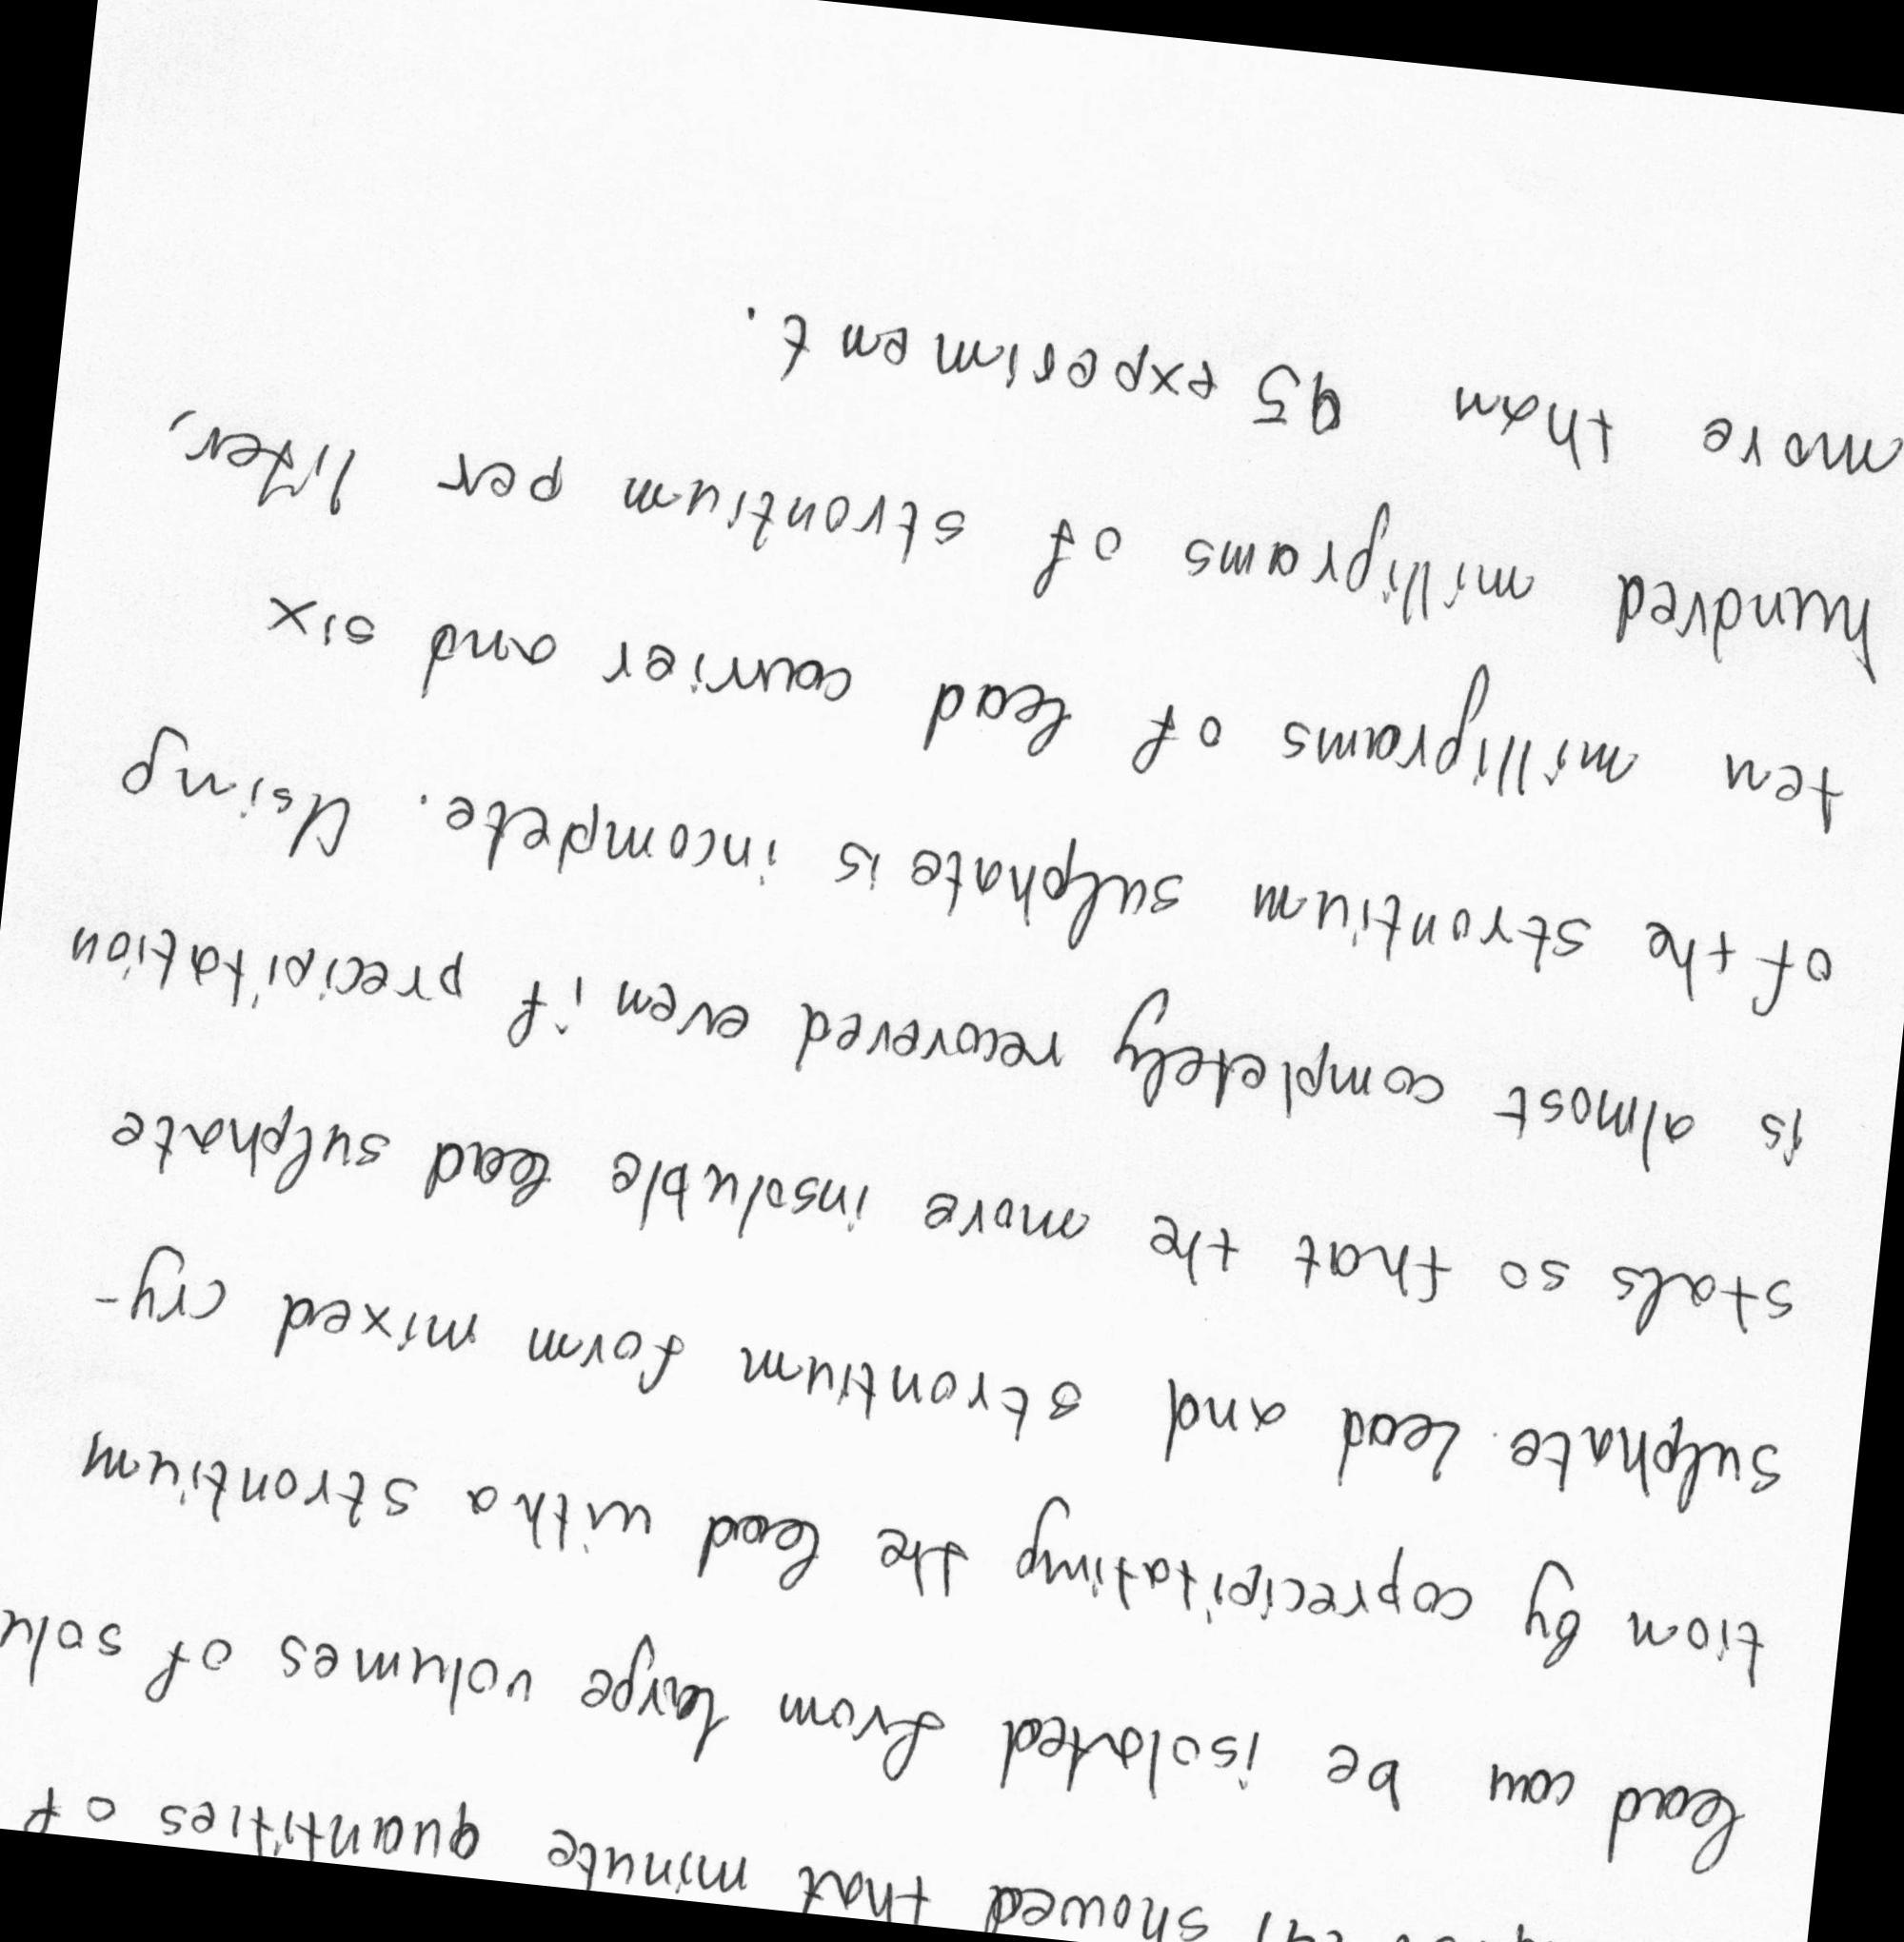 showed that minute quantities of
lead can be isolated from large volumes of solu
tion by coprecipitating the lead with a strontium
sulphate. Lead and strontium form mixed cry-
stals so that the more insoluble lead sulphate
is almost completely recovered even if precipitation
of the strontium sulphate is incomplete. Using
ten milligrams of lead carrier and six
hundred milligrams of strontium per liter,
more than 95 experiment.